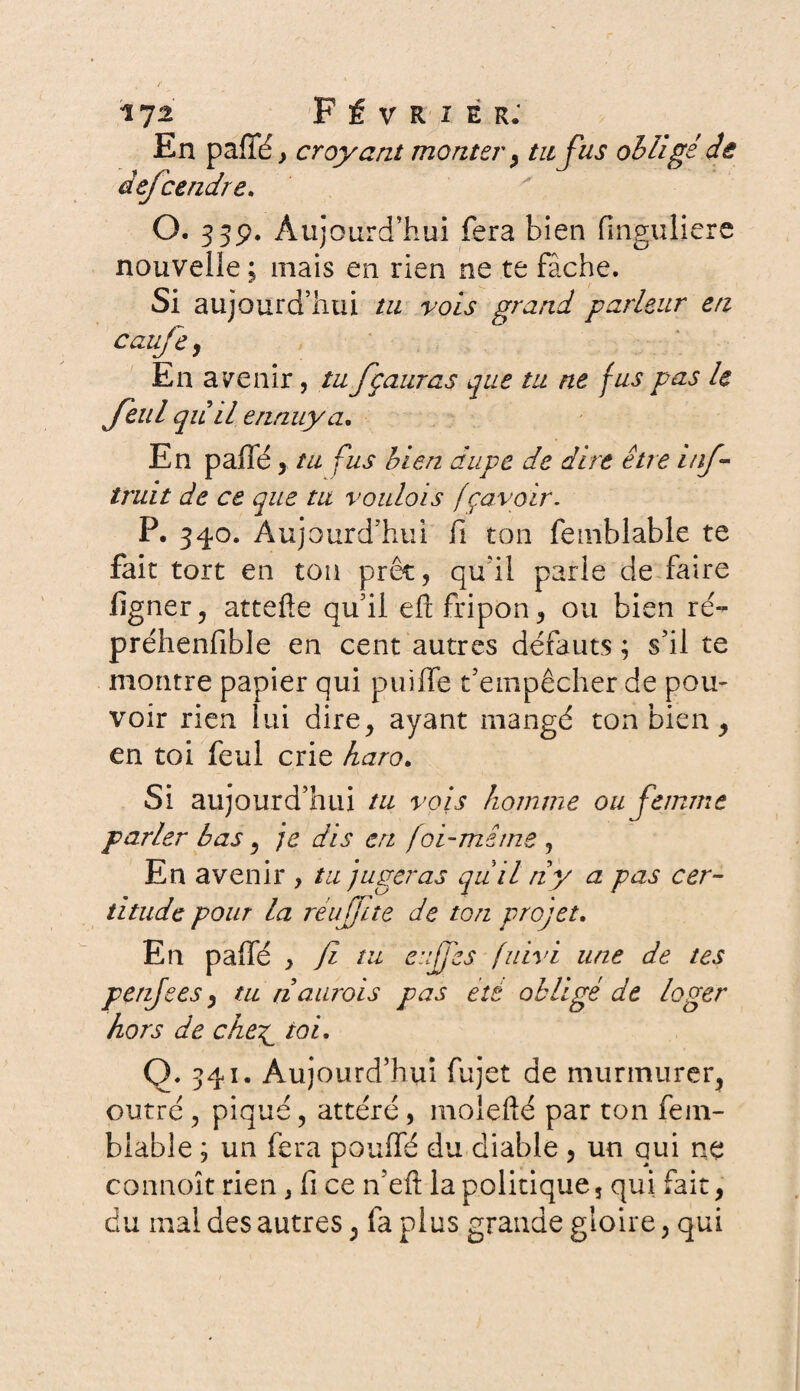 172 FÉVRIER.
En paſſé, croyant monter, tu fus obligé de
deſcendre.
O. 339. Aujourd'hui ſera bien ſinguliere
nouvelle ; mais en rien ne te fâche.
Si aujourd'hui tu vois grand parleur en
cauſe,
En avenir, tu ſçauras que tu ne fus pas le
ſeul qu'il ennuya.
En paſſé, tu fus bien dupe de dire être inſ-
truit de ce que tu voulois ſçavoir.
P. 340. Aujourd'hui ſi ton ſemblable te
fait tort en ton prêt, qu'il parle de faire
ſigner, atteſte qu'il eſt fripon, ou bien ré-
préhenſible en cent autres défauts ; s'il te
montre papier qui puiſſe t'empêcher de pou-
voir rien lui dire, ayant mangé ton bien,
en toi ſeul crie haro.
Si aujourd'hui tu vois homme ou femme
parler bas, je dis en ſoi-même,
En avenir, tu jugeras qu'il n'y a pas cer-
titude pour la réuſſite de ton projet.
En paſſé, ſi tu euſſes ſuivi une de tes
penſées, tu n'aurois pas été obligé de loger
hors de chez toi.
Q. 341. Aujourd'hui ſujet de murmurer,
outré, piqué, attéré, moleſté par ton ſem-
blable ; un ſera pouſſé du diable, un qui ne
connoît rien, ſi ce n'eſt la politique, qui fait,
du mal des autres, ſa plus grande gloire, qui